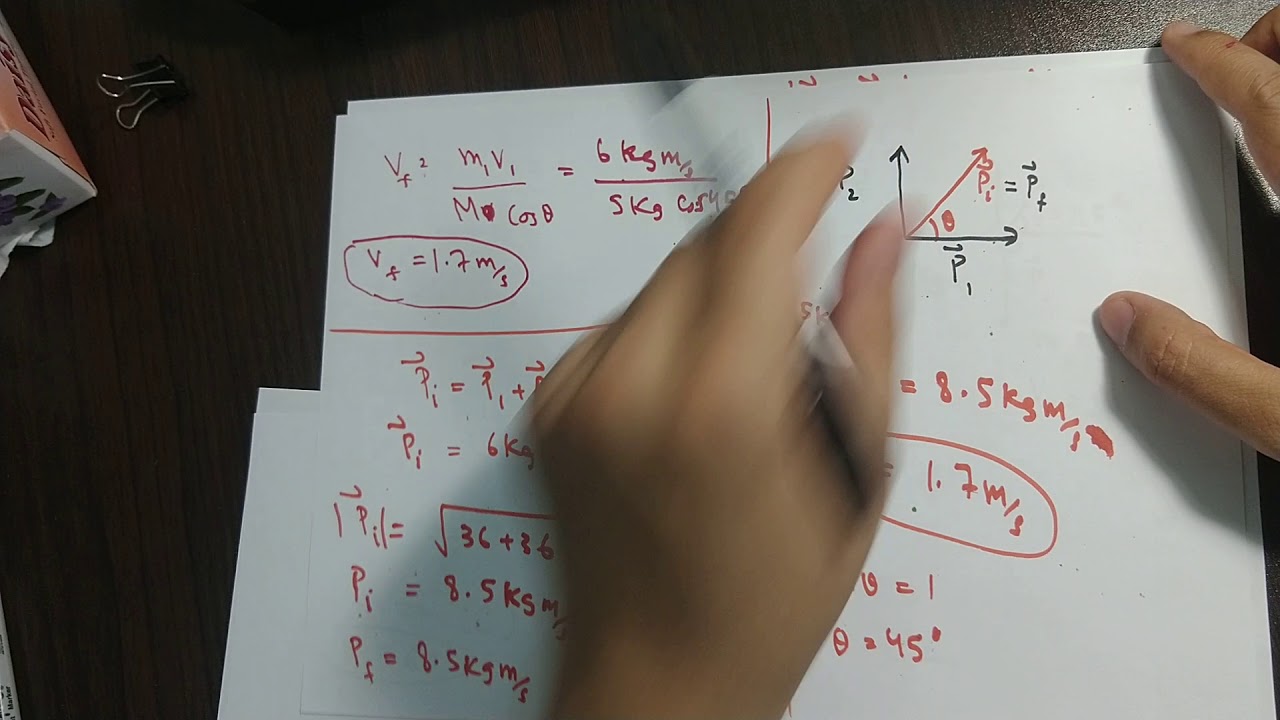 V_f = m₁V₁ / M Cosθ = 6 kg m/s / 5 Kg Cos4
V_f = 1.7 m/s
P⃗_i = P⃗₁ +
P⃗_i = 6 kg
|P⃗_i| = √36+36
P_i = 8.5 Kg m
P_f = 8.5 kg m/s
P⃗_i = P⃗_f
θ
P⃗₁
= 8.5 kg m/s
1.7 m/s
θ = 1
θ = 45°
Marker